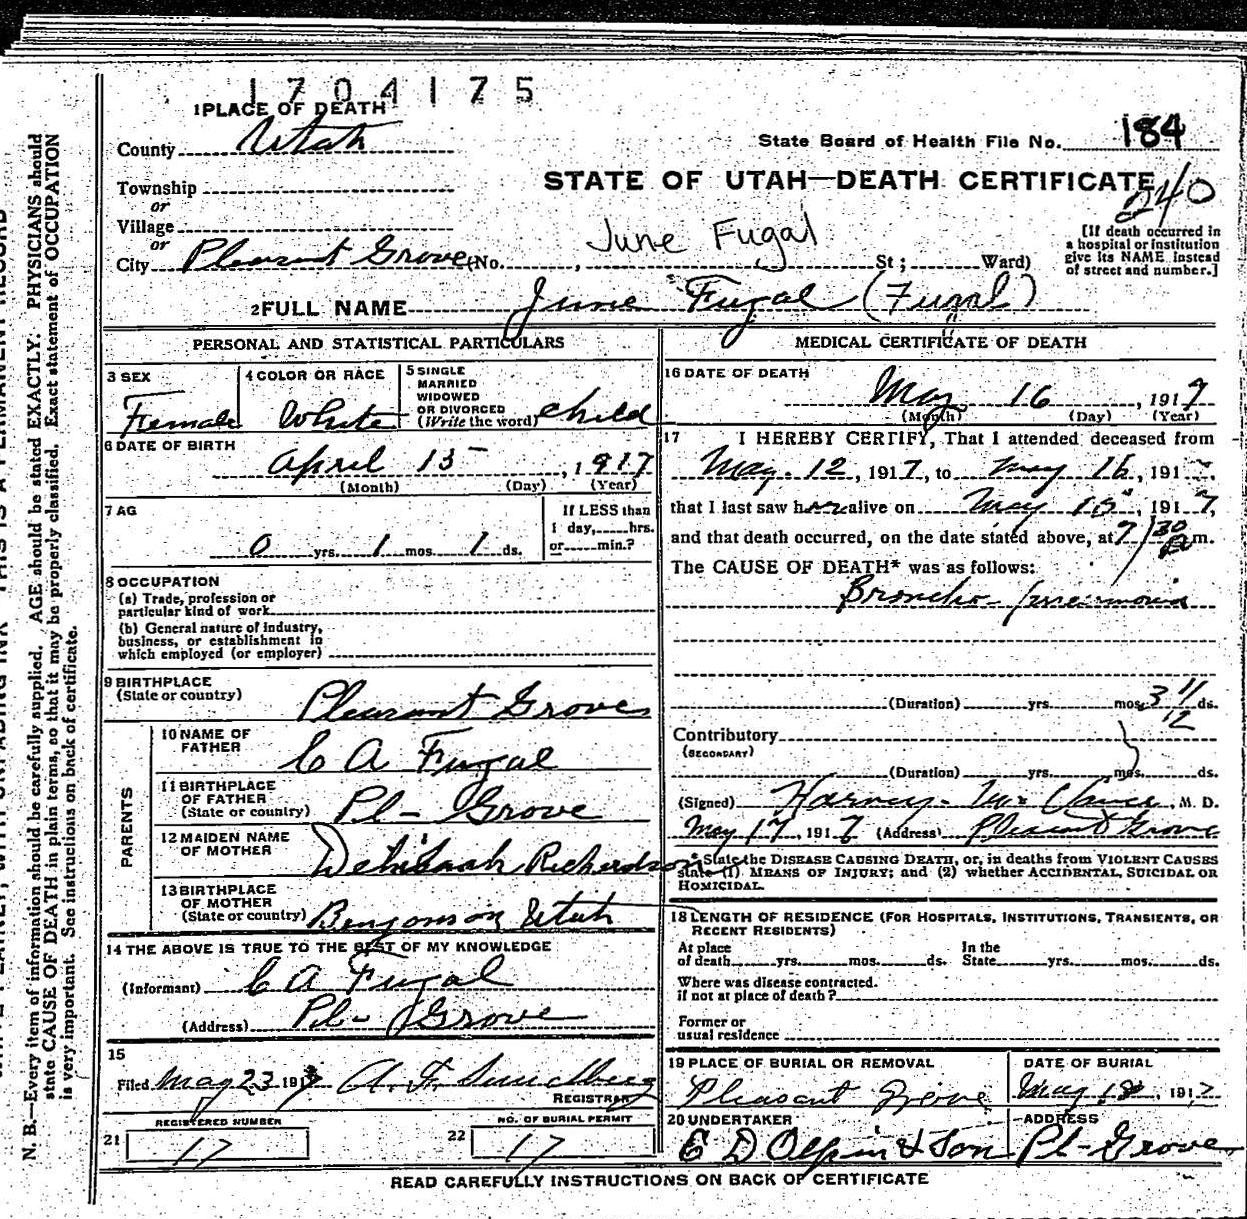 1704175
1 PLACE OF DEATH
County Utah
State Board of Health File No. 184
Township
STATE OF UTAH—DEATH CERTIFICATE
240
or
Village
or
June Fugal
City Pleasant Grove (No. , St; Ward)
[If death occurred in
a hospital or institution
give its NAME instead
of street and number.]
2 FULL NAME June Fugal (Fugal)
PERSONAL AND STATISTICAL PARTICULARS
3 SEX
Female
4 COLOR OR RACE
White
5 SINGLE
MARRIED
WIDOWED
OR DIVORCED
(Write the word) child
6 DATE OF BIRTH
April 15, 1917
(Month) (Day) (Year)
7 AG
0 yrs. 1 mos. 1 ds.
If LESS than
1 day, hrs.
or min.?
8 OCCUPATION
(a) Trade, profession or
particular kind of work
(b) General nature of industry,
business, or establishment in
which employed (or employer)
9 BIRTHPLACE
(State or country) Pleasant Grove
PARENTS
10 NAME OF
FATHER C A Fugal
11 BIRTHPLACE
OF FATHER
(State or country) Pl- Grove
12 MAIDEN NAME
OF MOTHER Richardson
13 BIRTHPLACE
OF MOTHER
(State or country) Utah
14 THE ABOVE IS TRUE TO THE BEST OF MY KNOWLEDGE
(Informant) C A Fugal
(Address) Pl- Grove
15
Filed May 23 1917
REGISTRAR
REGISTERED NUMBER
21 17
NO. OF BURIAL PERMIT
22 17
MEDICAL CERTIFICATE OF DEATH
16 DATE OF DEATH
May 16, 1917
(Month) (Day) (Year)
17 I HEREBY CERTIFY, That I attended deceased from
May. 12, 1917, to May 16, 191
that I last saw her alive on May 15, 1917,
and that death occurred, on the date stated above, at 7/30 m.
The CAUSE OF DEATH* was as follows:
Broncho-pneumonia
(Duration) yrs. mos. 3 11/12 ds.
Contributory
(SECONDARY)
(Duration) yrs. mos. ds.
(Signed) Harvey , M. D.
May 17, 1917 (Address) Pleasant Grove
*State the DISEASE CAUSING DEATH, or, in deaths from VIOLENT CAUSES
state (1) MEANS OF INJURY; and (2) whether ACCIDENTAL, SUICIDAL OR
HOMICIDAL.
18 LENGTH OF RESIDENCE (FOR HOSPITALS, INSTITUTIONS, TRANSIENTS, OR
RECENT RESIDENTS)
At place
of death yrs. mos. ds.
In the
State yrs. mos. ds.
Where was disease contracted.
if not at place of death?
Former or
usual residence
19 PLACE OF BURIAL OR REMOVAL
Pleasant Grove
DATE OF BURIAL
May 18, 1917
20 UNDERTAKER
E D Olpin & Son
ADDRESS
Pl-Grove
READ CAREFULLY INSTRUCTIONS ON BACK OF CERTIFICATE
N. B.—Every item of information should be carefully supplied. AGE should be stated EXACTLY. PHYSICIANS should
state CAUSE OF DEATH in plain terms, so that it may be properly classified. Exact statement of OCCUPATION
is very important. See instructions on back of certificate.